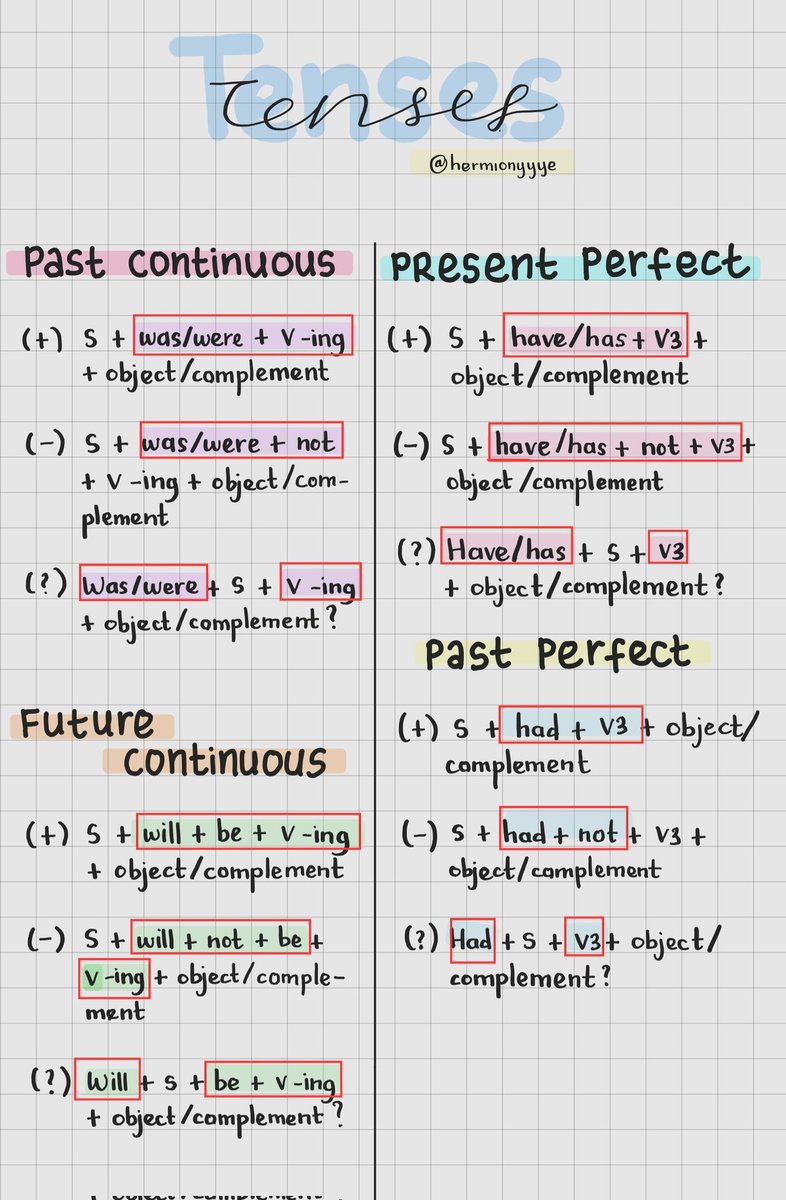 Tenses
Tenses
@hermionyyye
Past Continuous
(+) S + was/were + V -ing
+ object/complement
(-) S + was/were + not
+ V -ing + object/com-
plement
(?) Was/were + S + V -ing
+ object/complement?
Future
Continuous
(+) S + will + be + V -ing
+ object/complement
(-) S + will + not + be +
V -ing + object/comple-
ment
(?) Will + S + be + V -ing
+ object/complement?
Present Perfect
(+) S + have/has + V3 +
object/complement
(-) S + have/has + not + V3 +
object/complement
(?) Have/has + S + V3
+ object/complement?
Past Perfect
(+) S + had + V3 + object/
complement
(-) S + had + not + V3 +
object/complement
(?) Had + S + V3 + object/
complement?